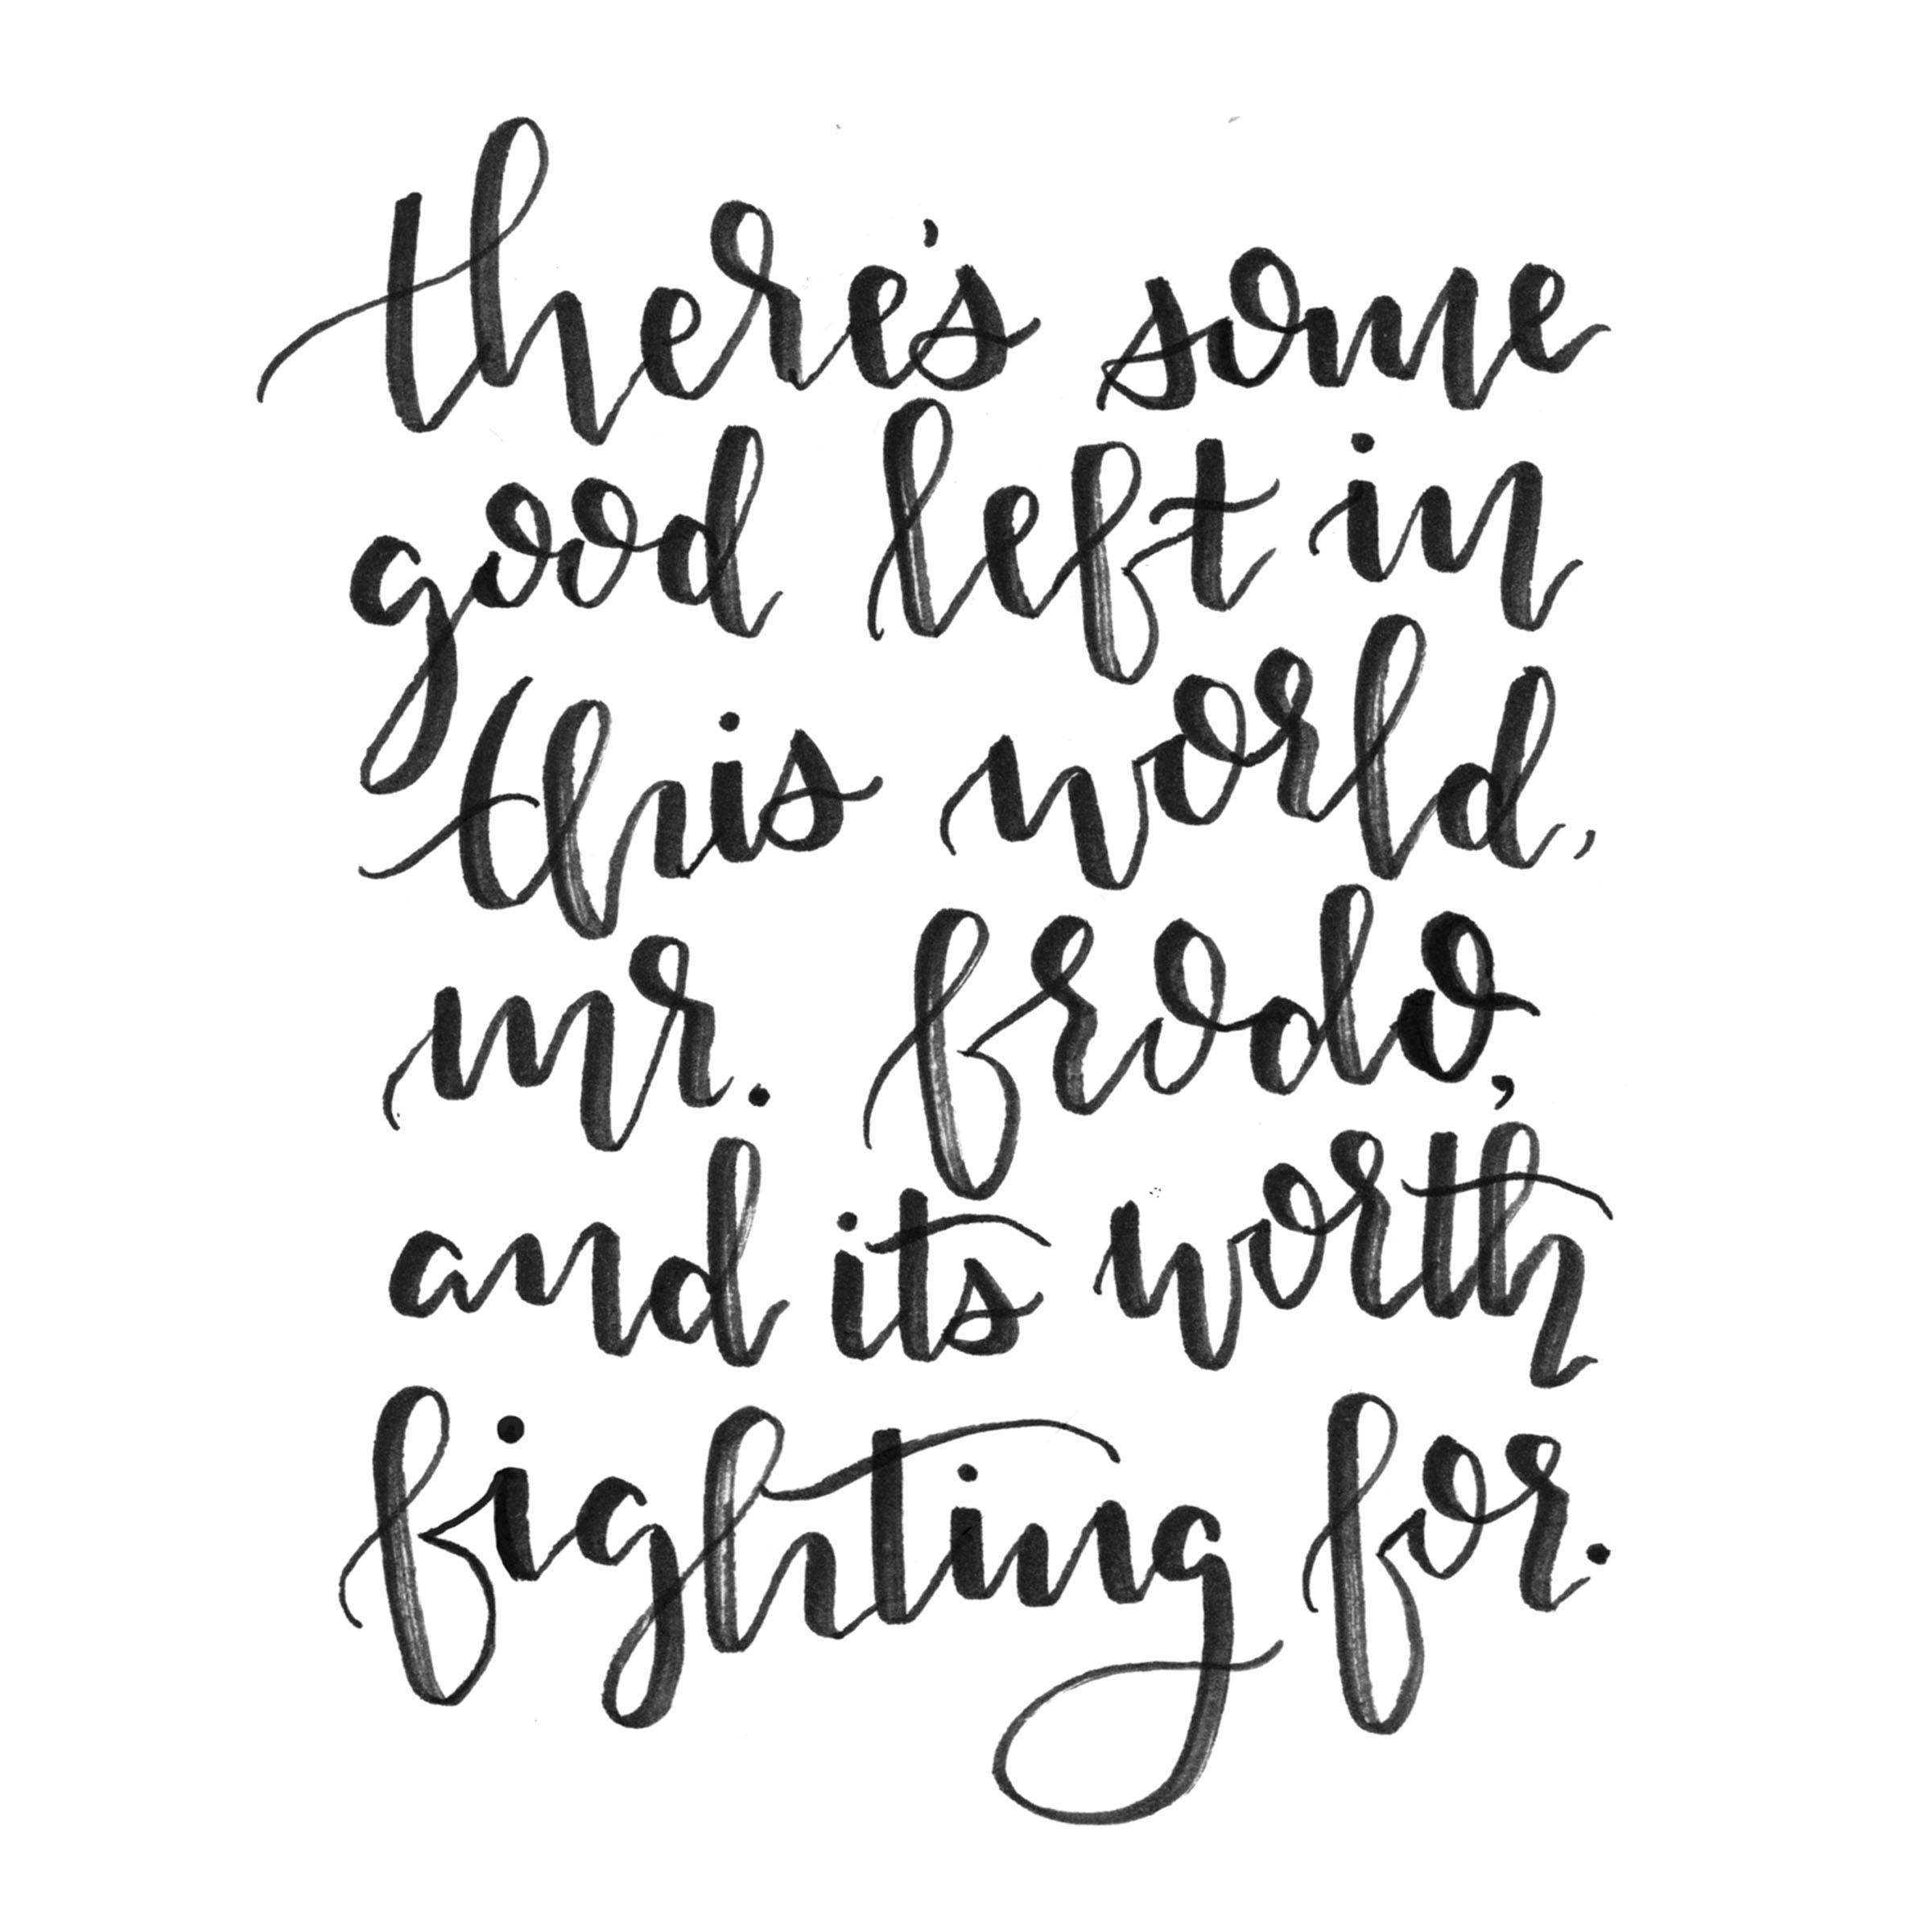 there's some
good left in
this world,
mr. frodo,
and its worth
fighting for.